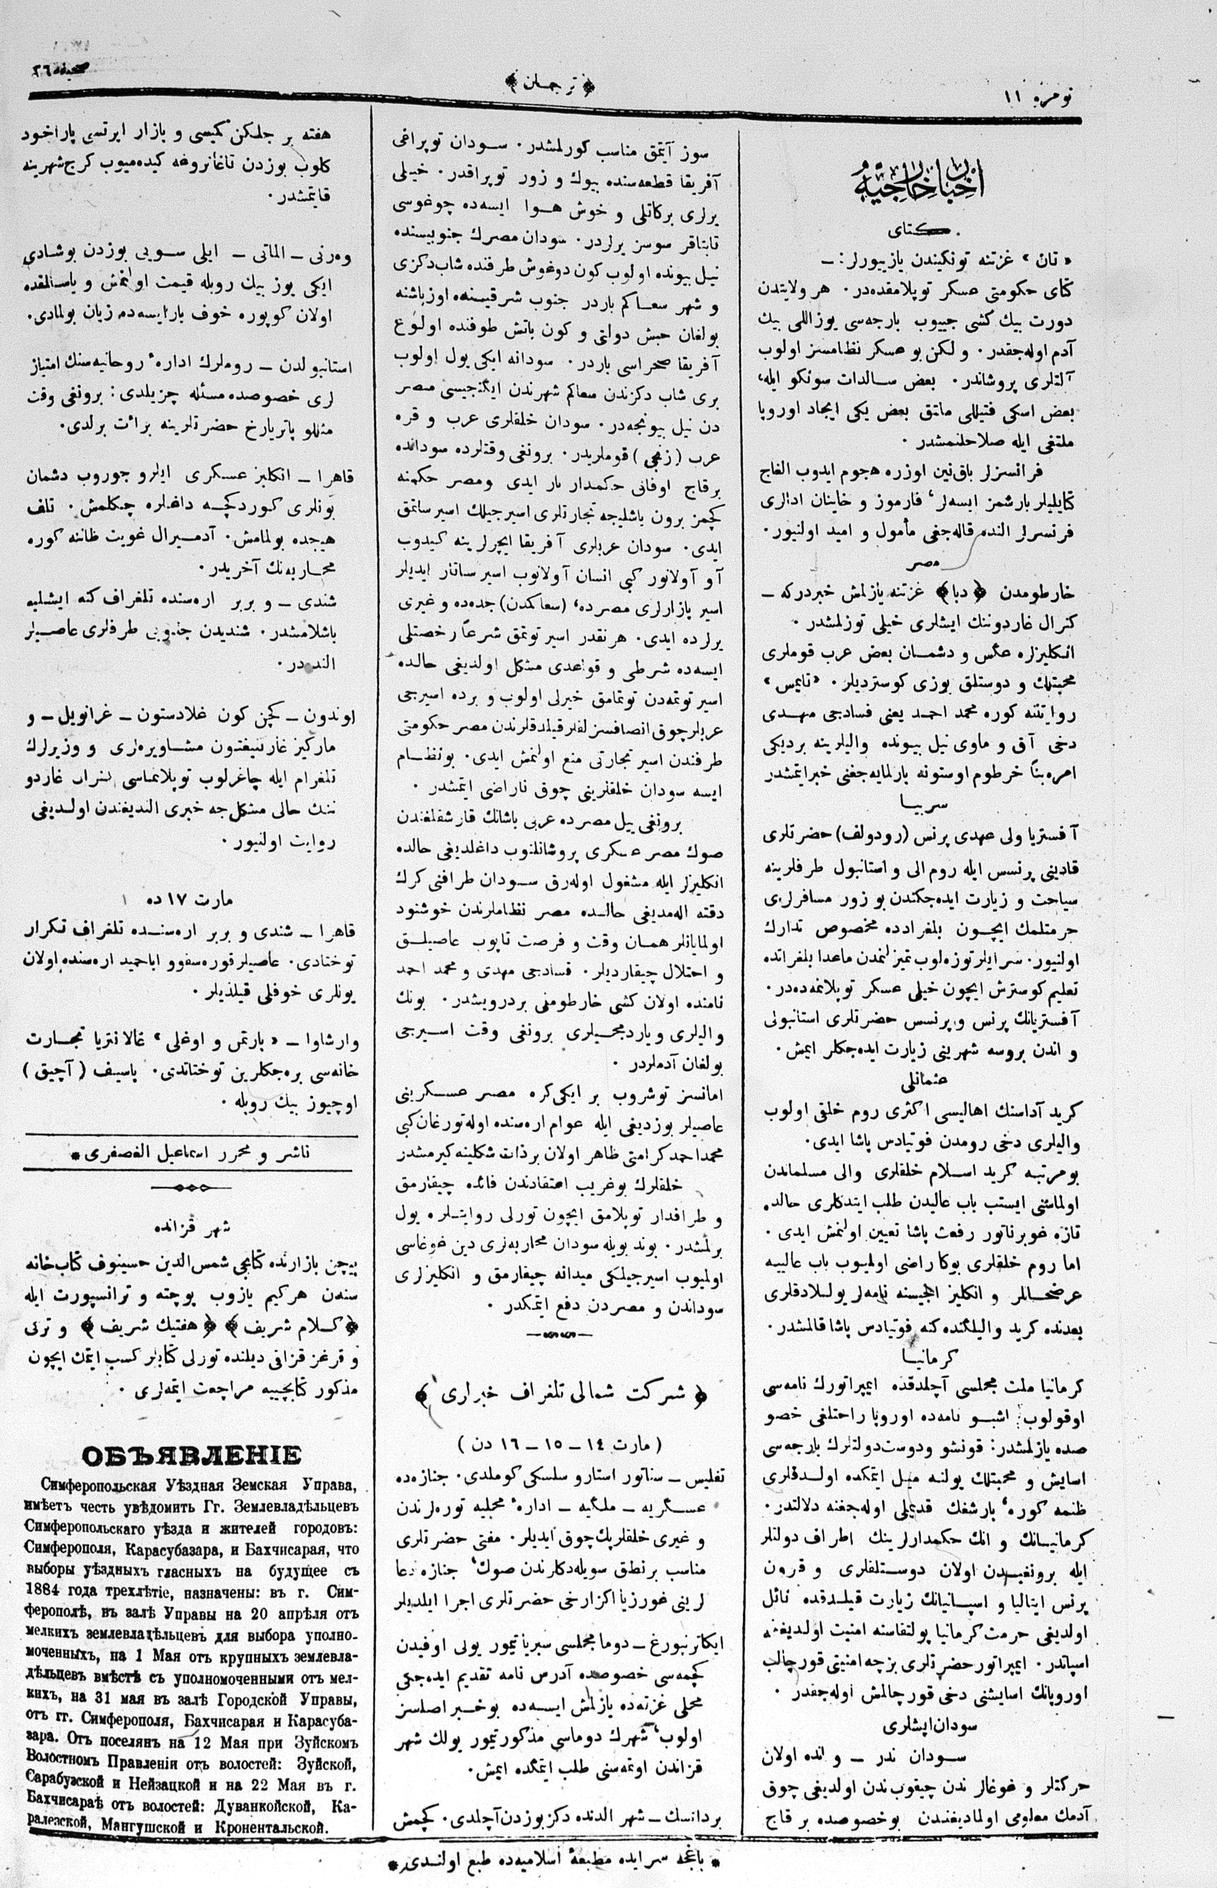 نومرو ١١
﴿ ترجمان ﴾
صحيفه ٢٦
اخبار خارجيه
كتاى
« تان » غزتنه تونكيندن يازيبورلر: ـ
كتاى حكومتى عسكر توپلامقده‌در. هر ولايتدن
دورت بيك كشى جييوب بارجه‌سى يوز اللى بيك
آدم اوله‌جقدر. ولكن بو عسكر نظامسز اولوب
آلتلرى پروشاندر. بعض سالدات سونكو ايله،
بعض اسكى فتيللى ملتق بعض يكى ايجاد اوروپا
ملتغى ايله صلاحلنمشدر.
فرانسزلر باق‌نين اوزره هجوم ايدوب الغاج
كتايليلر بارشمز ايسه‌لر، فارموز و خاينان ادالرى
فرنسزلر النده قاله‌جغى مأمول و اميد اولنيور.
مصر
خارطومدن ﴿ دبا ﴾ غزتنه يازلمش خبردركه ـ
كنرال غاردوننك ايشلرى خيلى توزلمشدر.
انكليزلره عكس و دشمان بعض عرب قوملرى
محبتلك و دوستلق يوزى كوسترديلر. « تايمس »
روايتنه كوره محمد احمد يعنى فسادجى مهدى
دخى آق و ماوى نيل بيونده واليلرينه برديكى
امره بناً خرطوم اوستونه بارلمايه‌جغنى خبر ايتمشدر
سربيا
آفستريا ولى عهدى پرنس (رودولف) حضرتلرى
قادينى پرنسس ايله روم الى و استانبول طرفلرينه
سياحت و زيارت ايده‌جكندن بو زور مسافرلرى
حرمتلمك ايچون بلغرادده مخصوص تدارك
اولنيور. سرايلر توزه‌لوب تميزلنمدن ماعدا بلغراتده
تعليم كوسترش ايچون خيلى عسكر توپلانمه‌ده‌در.
آفستريانك پرنس و پرنسس حضرتلرى استانبولى
و اندن بروسه شهرينى زيارت ايده‌جكلر ايمش.
عثمانلى
كريد آداسنك اهاليسى اكثرى روم خلقى اولوب
واليلرى دخى رومدن فوتيادس پاشا ايدى.
بو مرتبه كريد اسلام خلقلرى والى مسلماندن
اولماسنى ايستب باب عاليدن طلب ايتدكلرى حالده
تازه غوبرناتور رفعت پاشا تعيين اولنمش ايدى.
اما روم خلقلرى بوكا راضى اولميوب باب عاليه
عرضحاللر و انكليز ايلچيسنه نامه‌لر يوللادقلرى
بعدنده كريد واليلگنده كنه فوتيادس پاشا قالمشدر.
كرمانيا
كرمانيا ملت مجلسى آچلدقده ايمپراتورك نامه‌سى
اوقولوب اشبو نامه‌ده اوروپا راحتلغى خصو
صده يازلمشدر: قونشو و دوست دولتلرك بارجه‌سى
اسايش و محبتلك يولنه ميل ايتمكده اولدقلرى
ظنمه كوره، بارشقك قديملى اوله‌جغنه دلالتدر.
كرمانيانك و انك حكمدارلرينك اطراف دولتلر
ايله برونغيدن اولان دوستلقلرى و قرون
پرنس ايتاليا و اسپانيانك زيارت قيلدقده نائل
اولديغى حرمت كرمانيا پولتقاسنه امنيت اولديغنه
اسپاتدر. ايمپراتور حضرتلرى بزچه امنيتى قورچالب
اوروپانك اسايشنى دخى قورچالمش اوله‌جقدر.
سودان ايشلرى
سودان ندر ـ و انده اولان
حركتلر و غوغالر ندن چيقوب ندن اولديغى چوق
آدمك معلومى اولماديغندن بو خصوصده بر قاج
سوز آيتمق مناسب كورلمشدر. سودان توپراغى
آفريقا قطعه‌سنده بيوك و زور توپراقدر. خيلى
يرلرى بركاتلى و خوش هوا ايسه‌ده چوغوسى
قايناقر سوسز يرلردر. سودان مصرك جنوبيسنده
نيل بيونده اولوب كون دوغوش طرفنده شاب دكزى
و شهر سعاكم باردر جنوب شرقيسنده اوز باشنه
بولغان حبش دولتى و كون باتش طوفنده اولوغ
آفريقا صحراسى باردر. سودانه ايكى يول اولوب
برى شاب دكزندن سعاكم شهرندن ايگنجيسى مصر
دن نيل بيونجه‌در. سودان خلقلرى عرب و قره
عرب (زنجى) قوملريدر. برونغى وقتلرده سودانده
بر قاج اوفاق حكمدار بار ايدى و مصر حكمنه
كچمز برون باشليجه تجارتلرى اسيرجيلك اسير ساتمق
ايدى. سودان عربلرى آفريقا ايچرلرينه كيدوب
آو آولانور كبى انسان آولانوب اسير ساتار ايديلر
اسير بازارلرى مصرده، (سعاكمدن) جده‌ده و غيرى
يرلرده ايدى. هر نقدر اسير توتمق شرعاً رخصتلى
ايسه‌ده شرطى و قواعدى مشكل اولديغى حالده
اسير توتمه‌دن توتمامق خيرلى اولوب و برده اسيرجى
عربلر چوق انصافسزلقلر قيلدقلرندن مصر حكومتى
طرفندن اسير تجارتى منع اولنمش ايدى. بو نظام
ايسه سودان خلقلرينى چوق ناراضى ايتمشدر.
برونغى ييل مصرده عربى پاشانك قارشقلغندن
صوك مصر عسكرى پروشانلنوب داغلديغى حالده
انكليزلر ايله مشغول اوله‌رق سودان طرافنى كرك
دقته المه‌ديغى حالده مصر نظاملرندن خوشنود
اولمايانلر همان وقت و فرصت تاپوب عاصيلق
و احتلال چيقارديلر. فسادجى مهدى و محمد احمد
نامنده اولان كشى خارطومنى بر درويشدر. بونك
واليلرى و ياردمجيلرى برونغى وقت اسيرجى
بولغان آدملردر.
امانسز توشروب بر ايكى كره مصر عسكرينى
عاصيلر بوزديغى ايله عوام اره‌سنده اوله تورغان كبى
محمد احمد كرامتى ظاهر اولان بر ذات شكلينه كيرمشدر
خلقلرك بو غريب اعتقادندن فائده چيقارمق
و طرافدار توپلامق ايچون تورلى روايتلره يول
برلمشدر. بوند بويله سودان محاربه‌لرى دين غوغاسى
اولميوب اسيرجيلكى ميدانه چيقارمق و انكليزلرى
سوداندن و مصردن دفع ايتمكدر.
﴿ شركت شمالى تلغراف خبرلرى ﴾
(مارت ١٤ ـ ١٥ ـ ١٦ دن)
تفليس ـ سناتور استاروسلسكى كوملدى. جنازه‌ده
عسكريه ـ ملكيه ـ اداره محليه توره‌لرندن
و غيرى خلقلر پك چوق ايديلر. مفتى حضرتلرى
مناسب بر نطق سويله‌دكلرندن صوك، جنازه دعا
لرينى غورزيا اكزارخى حضرتلرى اجرا ايلديلر
ايكاترنبورغ ـ دوما مجلسى سبريا تيمور يولى اوفيدن
كچمه‌سى خصوصده آدرس نامه تقديم ايده‌جكى
محلى غزته‌ده يازلمش ايسه‌ده بو خبر اصلسز
اولوب، شهرك دوماسى مذكور تيمور يولك شهر
قزاندن اوتمه‌سنى طلب ايتمكده ايمش.
بردانسك ـ شهر الدنده دكز بوزدن آچلدى. كچمش
هفته بر جلكن كميسى و بازار ايرتسى پاراخود
كلوب بوزدن تاغانروغه كيده‌ميوب كرج شهرينه
قايتمشدر.
وه‌رنى ـ الماتى ـ ايلى سويى بوزدن بوشادى
ايكى يوز بيك روبله قيمت اولنمش و ياسالمقده
اولان كوپوره خوف بار ايسه‌ده زيان بولمادى.
استانبولدن ـ روملرك اداره روحانيه‌سنك امتياز
لرى خصوصده مسئله چزيلدى: برونغى وقت
مثللو پاتريارخ حضرتلرينه برائت برلدى.
قاهرا ـ انكليز عسكرى ايلرو جوروب دشمان
بونلرى كوردكچه داغلره چكلمش. تلف
هيچده بولمامش. آدميرال غويت ظاننه كوره
محاربه‌نك آخريدر.
شندى ـ و بربر اره‌سنده تلغراف كنه ايشليه
باشلامشدر. شنديدن جنوبى طرفلرى عاصيلر
النده‌در.
لوندون ـ كچن كون غلادستون ـ غرانويل ـ و
ماركيز غارتينغتون مشاويره‌لرى و وزيرلرك
تلغرام ايله چاغرلوب توپلانماسى كنرال غاردو
ننك حالى مشكل‌جه خبرى النديغندن اولديغى
روايت اولنيور.
مارت ١٧ ده
قاهرا ـ شندى و بربر اره‌سنده تلغراف تكرار
توختادى. عاصيلر قوره‌سقوو اباحميد اره‌سنده اولان
يوللرى خوفلى قيلديلر.
وارشاوا ـ « بارتمن و اوغلى » غالانتريا تجارت
خانه‌سى بره‌جكلرين توختاتدى. پاسيف (آچيق)
اوچيوز بيك روبله.
ناشر و محرر اسماعيل الغصفرى *
شهر قزانده
پيچن بازارنده كتابجى شمس الدين حسينوف كتاب خانه
سنه‌ن هركيم يازوب پوچته و ترانسپورت ايله
﴿ كلام شريف ﴾ ﴿ هفتيك شريف ﴾ و تركى
و قرغز قزاقى ديلنده تورلى كتابلر كسب ايتمك ايچون
مذكور كتابچييه مراجعت ايتمه‌لرى.
ОБЪЯВЛЕНІЕ
Симферопольская Уѣздная Земская Управа,
имѣетъ честь увѣдомить Гг. Землевладѣльцевъ
Симферопольскаго уѣзда и жителей городовъ:
Симферополя, Карасубазара, и Бахчисарая, что
выборы уѣздныхъ гласныхъ на будущее съ
1884 года трехлѣтіе, назначены: въ г. Сим-
ферополѣ, въ залѣ Управы на 20 апрѣля отъ
мелкихъ землевладѣльцевъ для выбора уполно-
моченныхъ, на 1 Мая отъ крупныхъ землевла-
дѣльцевъ вмѣстѣ съ уполномоченными отъ мел-
кихъ, на 31 мая въ залѣ Городской Управы,
отъ гг. Симферополя, Бахчисарая и Карасуба-
зара. Отъ поселянъ на 12 Мая при Зуйскомъ
Волостномъ Правленіи отъ волостей: Зуйской,
Сарабузской и Нейзацкой и на 22 Мая въ г.
Бахчисараѣ отъ волостей: Дуванкойской, Ка-
ралезской, Мангушской и Кронентальской.
* باغچه سرايده مطبعهٔ اسلاميه‌ده طبع اولندى *